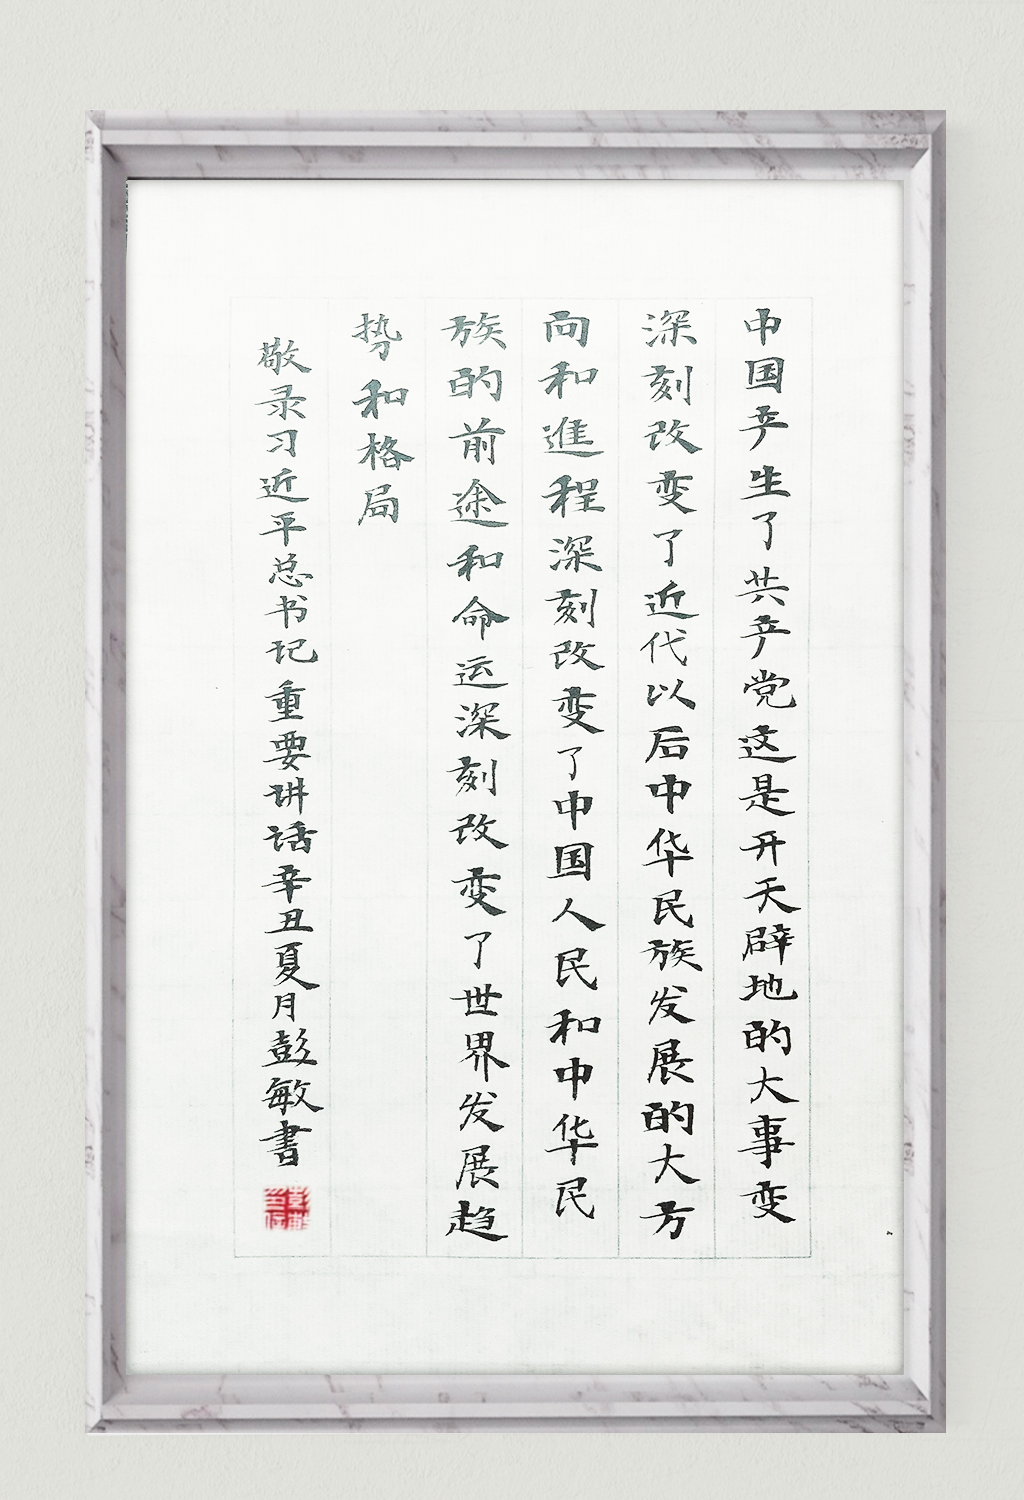 中国产生了共产党这是开天辟地的大事变
深刻改变了近代以后中华民族发展的大方
向和進程深刻改变了中国人民和中华民
族的前途和命运深刻改变了世界发展趋
势和格局
敬录习近平总书记重要讲话辛丑夏月彭敏書